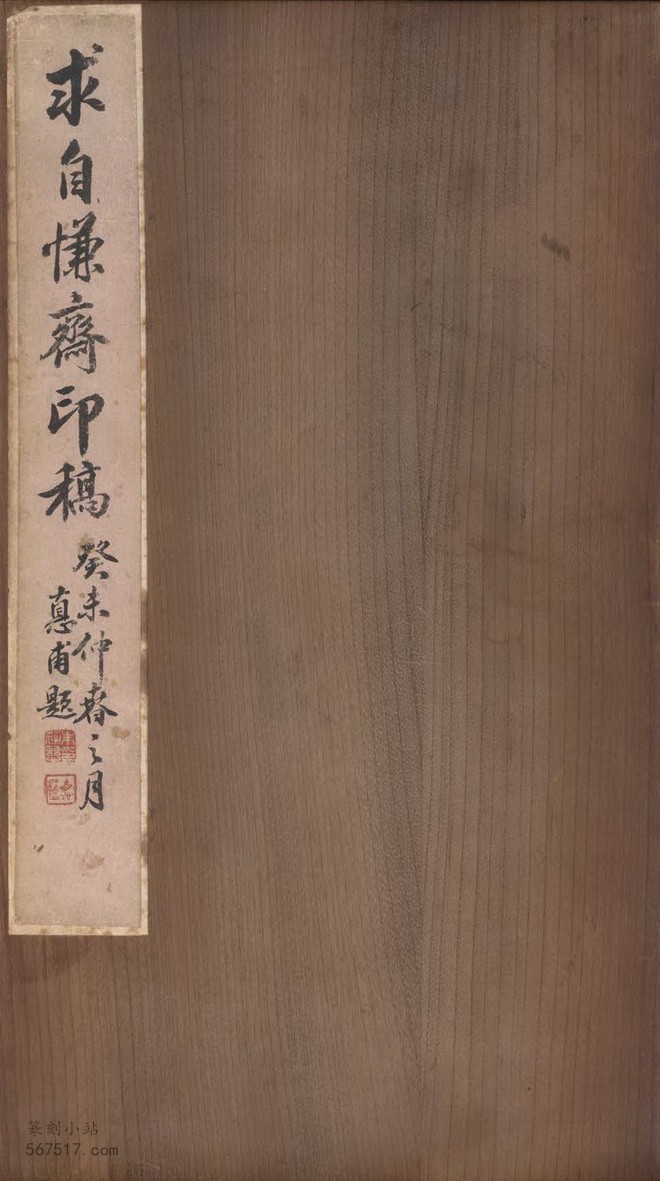 求自慊齋印稿
癸未仲春之月
惪甫題
篆刻小站
567517.com